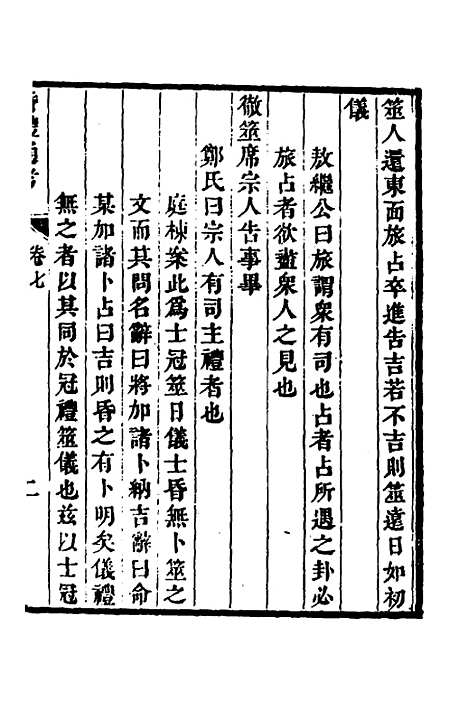 筮人還東面旅占卒進告吉若不吉則筮遠日如初
儀
敖繼公曰旅謂衆有司也占者占所遇之卦必
旅占者欲盡衆人之見也
徹筮席宗人告事畢
鄭氏曰宗人有司主禮者也
庭棟案此爲士冠筮日儀士昏無卜筮之
文而其問名辭曰將加諸卜納吉辭曰命
某加諸卜占曰吉則昏之有卜明矣儀禮
無之者以其同於冠禮筮儀也兹以士冠
卷七
二